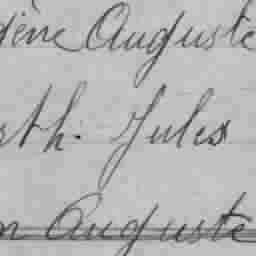 gène Auguste
rth. Jules
n Auguste